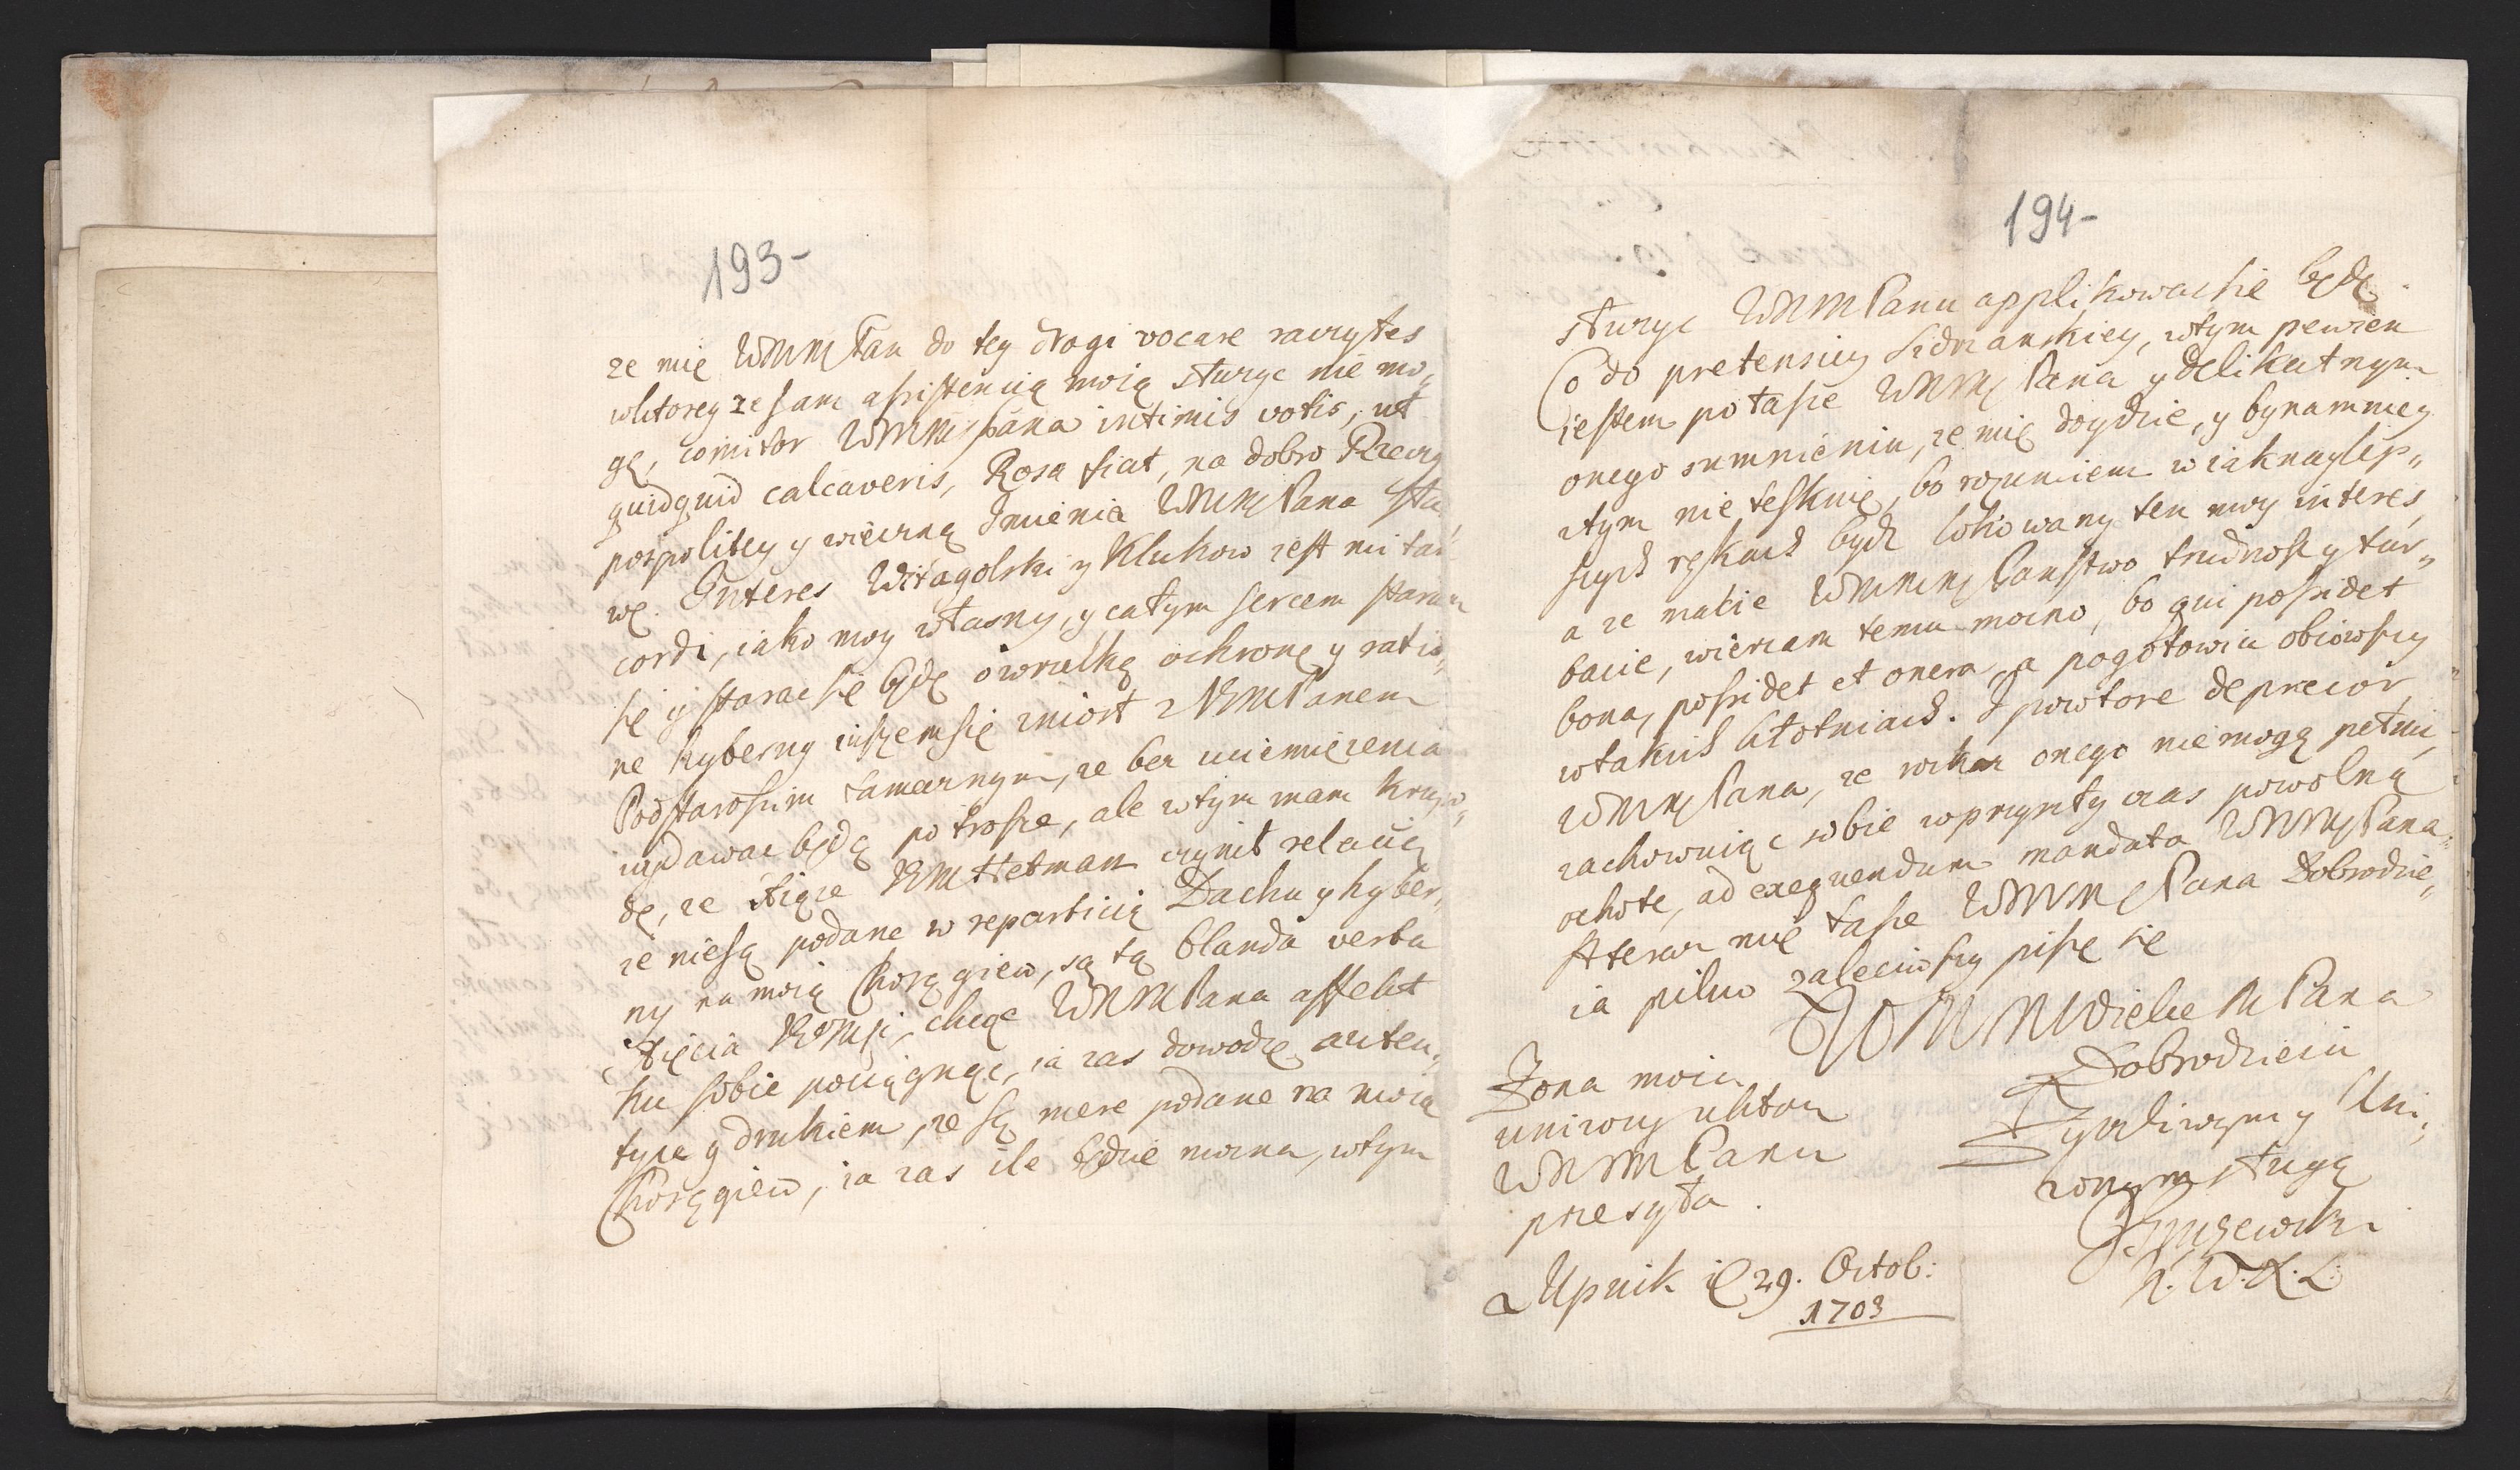 193-
ze mię WMM Pan do tey drogi vocare raczyłes
wktorey ze sam assistencią moią słuzyc nie mo„
gę, comitor WMMPana intimis votis, ut
quidquid calcaveris, Rosa fiat, na dobro Rzeczy
pospolitey y wieczną Imienia WMMPana sła„
wę. Interes Witagolski y Klukow iest mi tak
cordi, iako moy własny, y całym sercem staram
się y starac się będę owszelką ochronę y ratio„
ne hyberny iuszem się zniost z JEMPanem
Podstarosim tamecznym, ze bez uciemięzenia
wydawac będą po trosze, ale wtym mam krzyw„
dę, ze Xiąze JEM Hetman czynił relacią
ze niesą podane w repartią Dachu y hyber„
ny na moią Chorągiew, są tą blanda verba
Xięcia JEMsci, chcąc WMMPana affekt
ku sobie pociągnąc, ia zas dowodzę auten„
tyce y drukiem, ze są mere podane na moią
Chorągiew, ia zas ile będzie mozna, wtym
194-
słuzyc WMMPanu applikowac się będę.
Co do pretensiey Sidrianskiey, wtym pewien
iestem po łasce WMMPana y delikatnym
onego sumnieniu, ze mię doydzie, y bynamniey
wtym nie tesknię, bo rozumiem w iaknaylep„
szych rękach bydz lokowany ten moy interes,
a ze macie WMMM Panstwo trudnosc y tur„
bacie, wierzam temu mocno, bo qui possidet
bona, possidet et onera, a pogotowiu obiowszy
wtakich kłotniach. I powtore deprecor
WMMPana, ze rozkazu onego nie mogę pełnic,
zachowuiąc sobie w przyszły czas powolną
ochotę, ad exequendum mandata WMMPana„
A teraz mię łasce WMMM Pana Dobrodzie„
ia pilno zaleciwszy piszę się
WMM Wielce M Pana
Dobrodzieia
Zyczliwym y Uni„
zonym sługą
K. W. X. L.
Zona moia
unizony ukłon
WMMPanu
przesyła.
z Upnik d 29. Octob:
1703